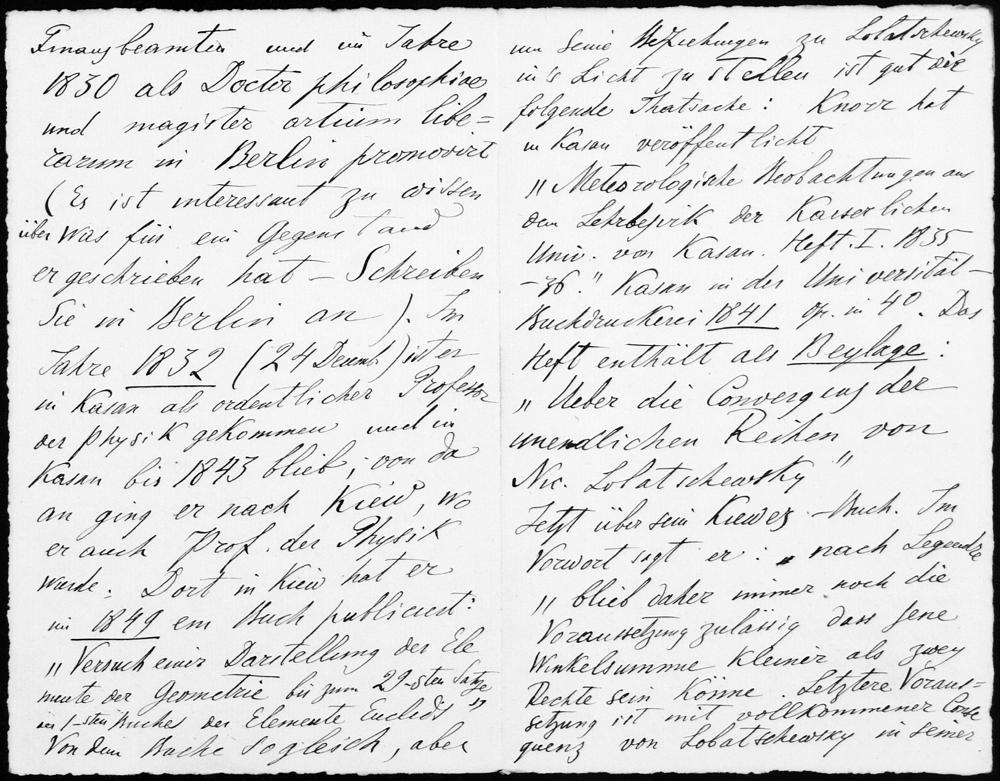 Finanzbeamten und im Jahre
1830 als Doctor philosophiae
und magister artium libe=
rarum in Berlin promovirt
(Es ist interessant zu wissen
über was für ein Gegenstand
er geschrieben hat – Schreiben
Sie in Berlin an). Im
Jahre 1832 (24 Decemb.) ist er
in Kasan als ordentlicher Professor
der physik gekommen und in
Kasan bis 1843 blieb; von da
an ging er nach Kiew, wo
er auch Prof. der Physik
wurde. Dort in Kiew hat er
im 1849 ein Buch publicirt:
„Versuch einer Darstellung der Ele
mente der Geometrie bis zum 29-sten Satze
des 1-sten Buches der Elemente Euclids"
Von dem Buche sogleich, aber
um seine Beziehungen zu Lobatschewsky
in's Licht zu stellen ist gut die
folgende Thatsache: Knorr hat
in Kasan veröffentlicht
„Meteorologische Beobachtungen aus
dem Lehrbezirk der Kaiserlichen
Univ. von Kasan. Heft. I. 1835
–36." Kasan in der Universität–
Buchdruckerei 1841 gr. in 4°. Das
Heft enthält als Beylage:
„Ueber die Convergenz der
unendlichen Reihen von
Nic. Lobatschewsky"
Jetzt über sein Kiewer – Buch. Im
Vorwort sagt er: „nach Legendre
„blieb daher immer noch die
Voraussetzung zulässig dass jene
Winkelsumme kleiner als zwey
Rechte sein könne. Letztere Voraus=
setzung ist mit vollkommener Conse
quenz von Lobatschewsky in seiner